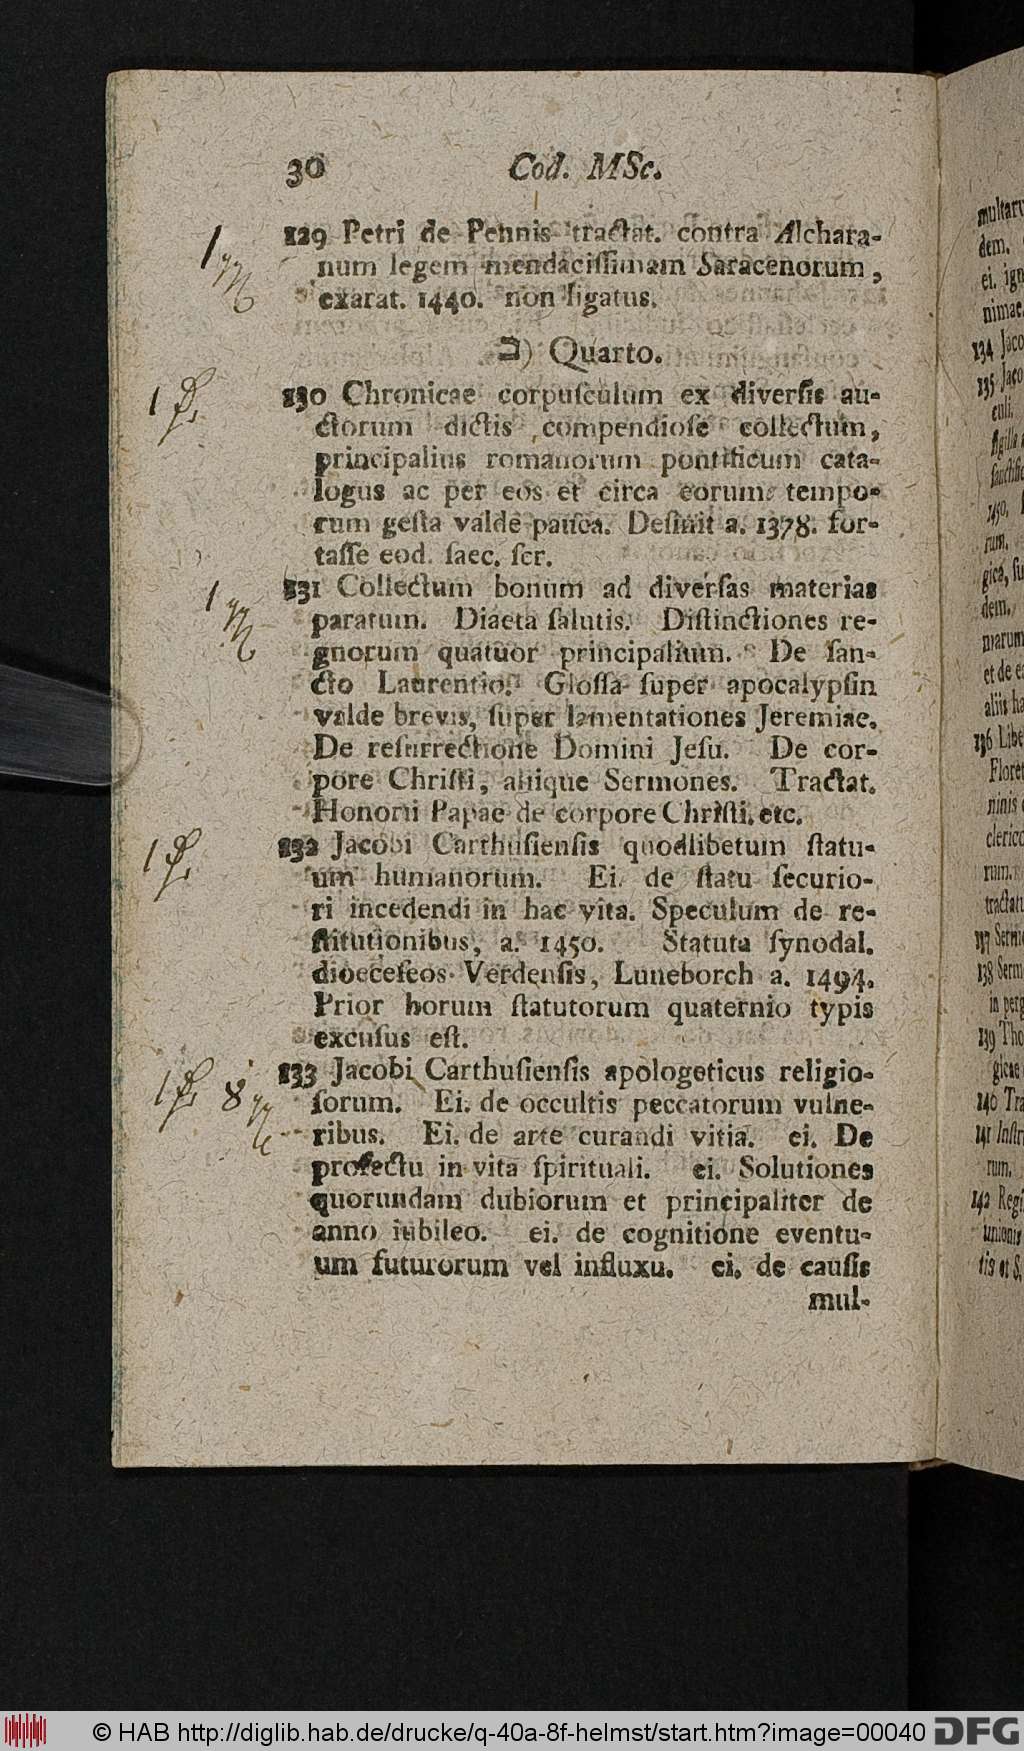 30 Cod. MSc.
129 Petri de Pennis tractat. contra Alchara-
num legem mendaciſſimam Saracenorum,
exarat. 1440. non ligatus.
ב) Quarto.
130 Chronicae corpuſculum ex diverſis au-
ctorum dictis compendioſe collectum,
principalius romanorum pontificum cata-
logus ac per eos et circa eorum tempo-
rum geſta valde pauca. Deſinit a. 1378. for-
taſſe eod. ſaec. ſcr.
131 Collectum bonum ad diverſas materias
paratum. Diaeta ſalutis. Diſtinctiones re-
gnorum quatuor principalium. De ſan-
cto Laurentio. Gloſſa ſuper apocalypſin
valde brevis, ſuper lamentationes Jeremiae.
De reſurrectione Domini Jeſu. De cor-
pore Chriſti, aliique Sermones. Tractat.
Honorii Papae de corpore Chriſti. etc.
132 Jacobi Carthuſienſis quodlibetum ſtatu-
um humanorum. Ei. de ſtatu ſecurio-
ri incedendi in hac vita. Speculum de re-
ſtitutionibus, a. 1450. Statuta ſynodal.
dioeceſeos Verdenſis, Luneborch a. 1494.
Prior horum ſtatutorum quaternio typis
excuſus eſt.
133 Jacobi Carthuſienſis apologeticus religio-
ſorum. Ei. de occultis peccatorum vulne-
ribus. Ei. de arte curandi vitia. ei. De
profectu in vita ſpirituali. ei. Solutiones
quorundam dubiorum et principaliter de
anno iubileo. ei. de cognitione eventu-
um futurorum vel influxu. ei. de cauſis
mul-
dem.
ei. ign
134 Jaco
135 Jaco
1450.
rum.
dem.
et de
136 Libe
Floret
ninis
rum.
137
138 Serm
in perg
139 Tho
140 Tra
141 Inſtr
rum.
142 Regi
unionis
© HAB http://diglib.hab.de/drucke/q-40a-8f-helmst/start.htm?image=00040 DFG